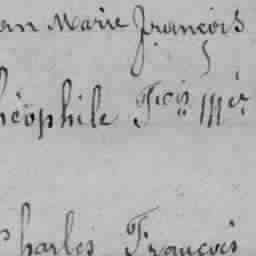 an Marie François
héophile Fçois M
Charles François